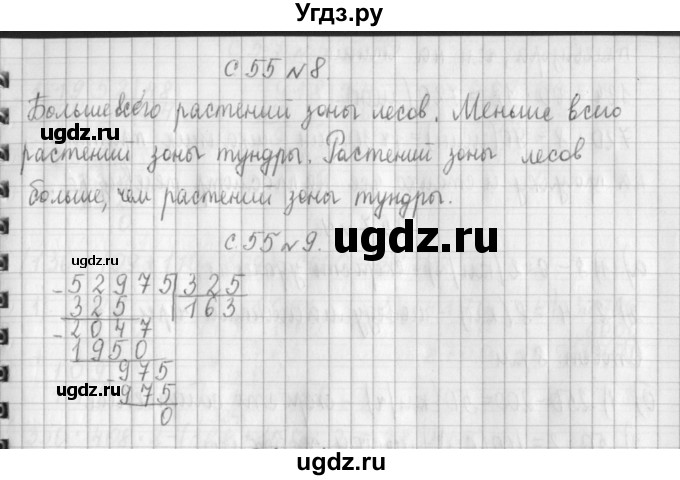 Угдз.ру
С 55 №8.
Больше всего растений зоны лесов. Меньше всего
ugdz.ru
растений зоны тундры. Растений зоны лесов
больше, чем растений зоны тундры.
ugdz.ru
С 55 №9.
ugdz.ru
- 52975 | 325
325 | 163
- 2047
1950
- 975
ugdz.ru
975
0
ugdz.ru
ugdz.ru